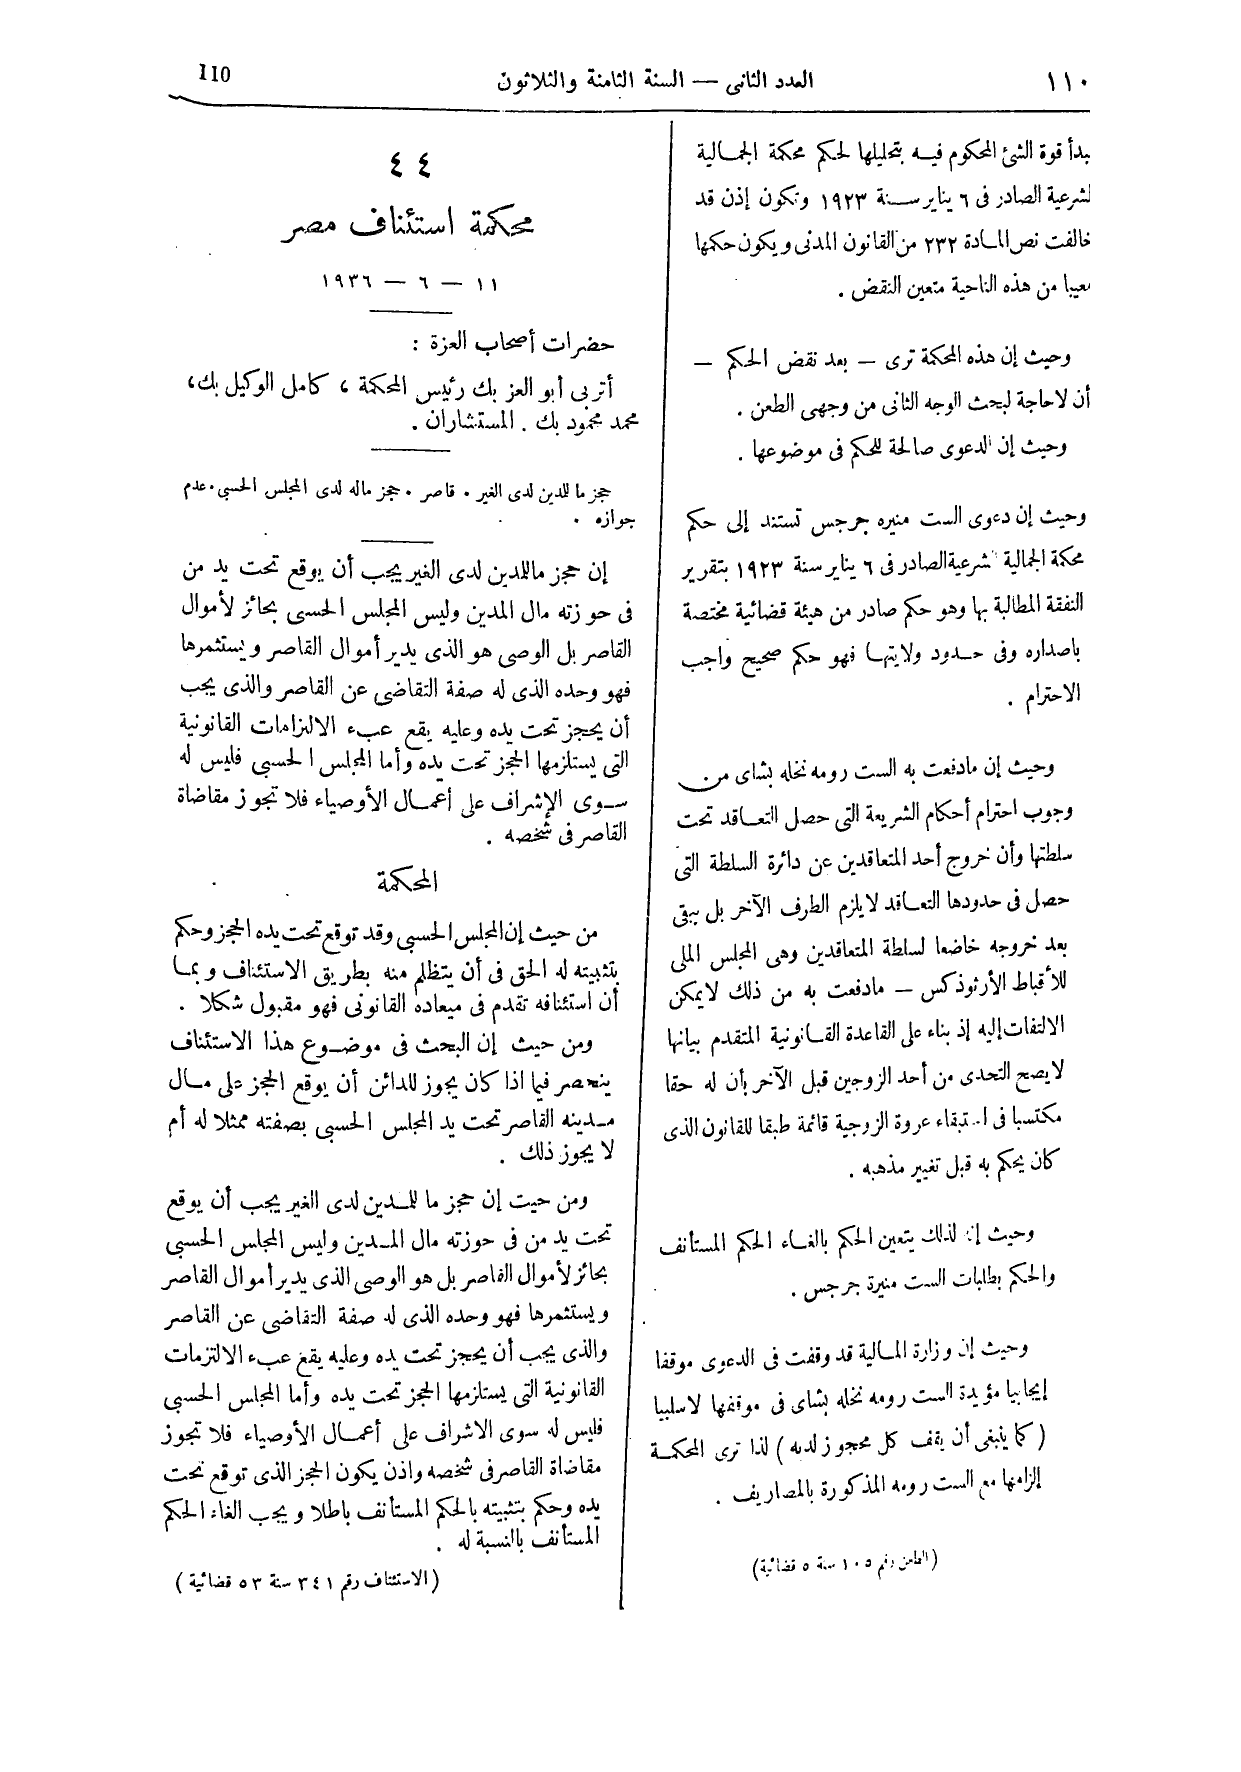 ١١٠
العدد الثانى — السنة الثامنة والثلاثون
110
بدأ قوة الشئ المحكوم فيه بتحليلها لحكم محكمة الجمالية
لشرعية الصادر فى ٦ يناير سنة ١٩٢٣ وتكون إذن قد
خالفت نص المادة ٢٣٢ من القانون المدنى ويكون حكمها
معيبا من هذه الناحية متعين النقض .
وحيث إن هذه المحكمة ترى — بعد نقض الحكم —
أن لاحاجة لبحث الوجه الثانى من وجهى الطعن .
وحيث إن الدعوى صالحة للحكم فى موضوعها .
وحيث إن دعوى الست منيره جرجس تستند إلى حكم
محكمة الجمالية الشرعية الصادر فى ٦ يناير سنة ١٩٢٣ بتقرير
النفقة المطالبة بها وهو حكم صادر من هيئة قضائية مختصة
باصداره وفى حدود ولايتها فهو حكم صحيح واجب
الاحترام .
وحيث إن مادفعت به الست رومه نخله بشاى من
وجوب احترام أحكام الشريعة التى حصل التعاقد تحت
سلطتها وأن خروج أحد المتعاقدين عن دائرة السلطة التى
حصل فى حدودها التعاقد لايلزم الطرف الآخر بل يبقى
بعد خروجه خاضعا لسلطة المتعاقدين وهى المجلس الملى
للأقباط الأرثوذكس — مادفعت به من ذلك لايمكن
الالتفات إليه إذ بناء على القاعدة القانونية المتقدم بيانها
لايصح التحدى من أحد الزوجين قبل الآخر بأن له حقا
مكتسبا فى استبقاء عروة الزوجية قائمة طبقا للقانون الذى
كان يحكم به قبل تغيير مذهبه .
وحيث إنه لذلك يتعين الحكم بالغاء الحكم المستأنف
والحكم بطلبات الست منيرة جرجس .
وحيث إن وزارة المالية قد وقفت فى الدعوى موقفا
إيجابيا مؤيدة الست رومه نخله بشاى فى موقفها لاسلبيا
( كما ينبغى أن يقف كل محجوز لديه ) لذا ترى المحكمة
إلزامها مع الست رومه المذكورة بالمصاريف .
(الطعن رقم ١٠٥ سنة ٥ قضائية)
٤٤
محكمة استئناف مصر
١١ — ٦ — ١٩٣٦
حضرات أصحاب العزة :
أتربى أبو العز بك رئيس المحكمة ، كامل الوكيل بك،
محمد محمود بك . المستشاران .
حجز ما للدين لدى الغير . قاصر . حجز ماله لدى المجلس الحسبى . عدم
جوازه .
إن حجز ماللدين لدى الغير يجب أن يوقع تحت يد من
فى حوزته مال المدين وليس المجلس الحسبى بحائز لأموال
القاصر بل الوصى هو الذى يدير أموال القاصر ويستثمرها
فهو وحده الذى له صفة التقاضى عن القاصر والذى يجب
أن يحجز تحت يده وعليه يقع عبء الالتزامات القانونية
التى يستلزمها الحجز تحت يده وأما المجلس الحسبى فليس له
سوى الإشراف على أعمال الأوصياء فلا تجوز مقاضاة
القاصر فى شخصه .
المحكمة
من حيث إن المجلس الحسبى وقد توقع تحت يده الحجز وحكم
بتثبيته له الحق فى أن يتظلم منه بطريق الاستئناف وبما
أن استئنافه تقدم فى ميعاده القانونى فهو مقبول شكلا .
ومن حيث إن البحث فى موضوع هذا الاستئناف
ينحصر فيما اذا كان يجوز للدائن أن يوقع الحجز على مال
مدينه القاصر تحت يد المجلس الحسبى بصفته ممثلا له أم
لا يجوز ذلك .
ومن حيث إن حجز ما للمدين لدى الغير يجب أن يوقع
تحت يد من فى حوزته مال المدين وليس المجلس الحسبى
بحائز لأموال القاصر بل هو الوصى الذى يدير أموال القاصر
ويستثمرها فهو وحده الذى له صفة التقاضى عن القاصر
والذى يجب أن يحجز تحت يده وعليه يقع عبء الالتزمات
القانونية التى يستلزمها الحجز تحت يده وأما المجلس الحسبى
فليس له سوى الاشراف على أعمال الأوصياء فلا تجوز
مقاضاة القاصر فى شخصه واذن يكون الحجز الذى توقع تحت
يده وحكم بتثبيته بالحكم المستأنف باطلا ويجب الغاء الحكم
المستأنف بالنسبة له .
(الاستئناف رقم ٣٤١ سنة ٥٣ قضائية )